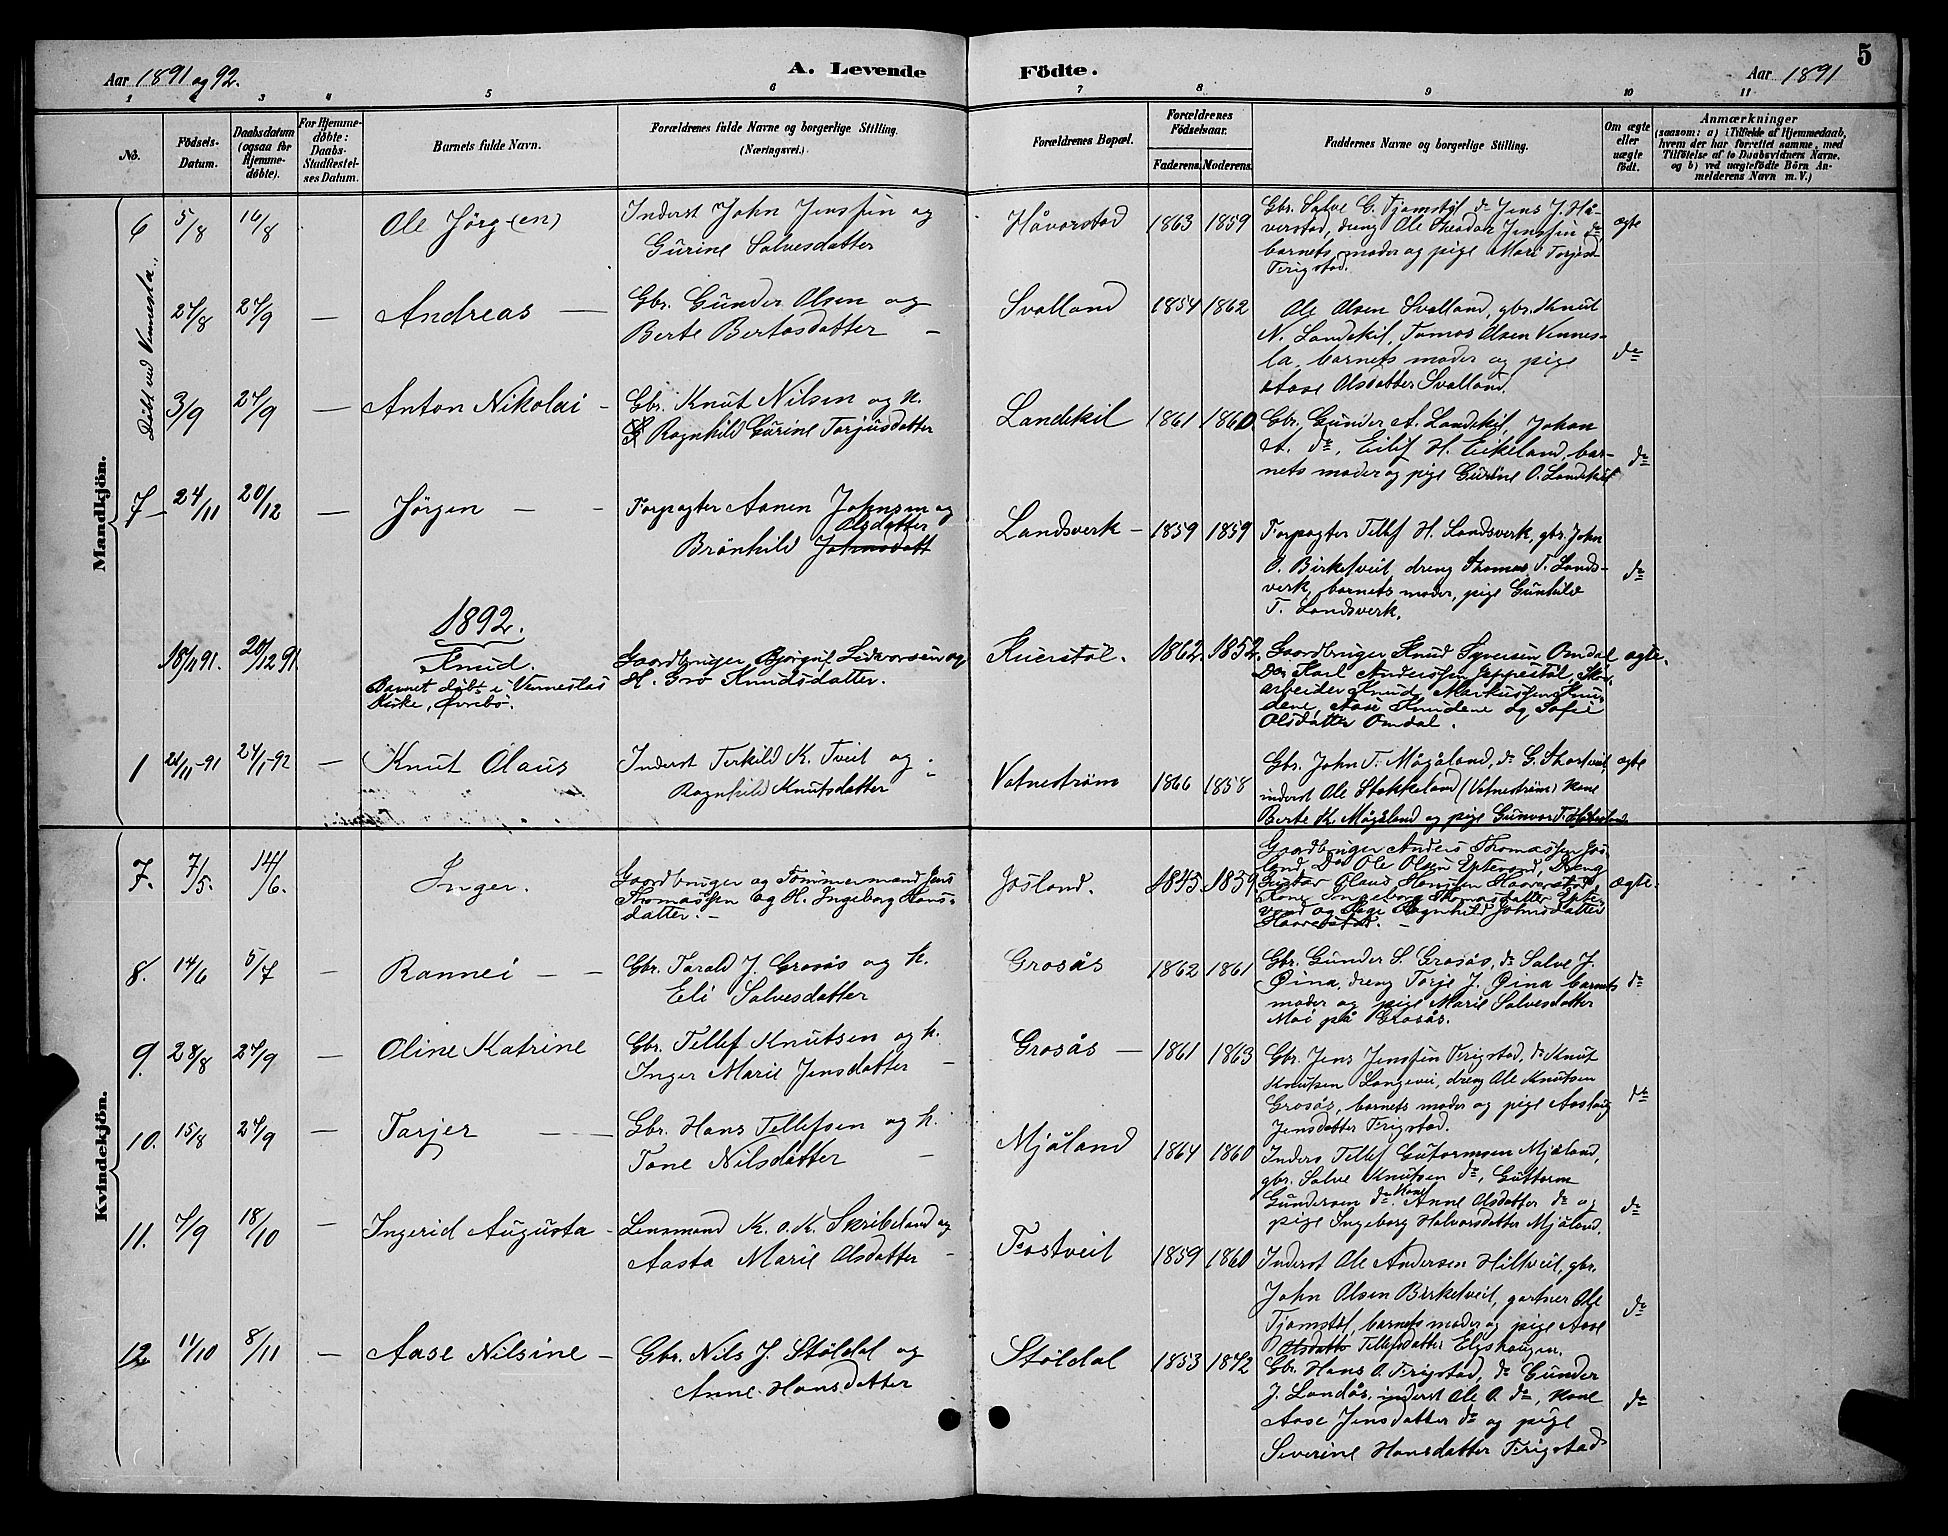 5
Aar 1891 og 92.
A. Levende Födte.
Aar 1891
1 2 3 4 5 6 7 8 9 10 11
No.
Födsels-Datum.
Daabsdatum (ogsaa for Hjemmedøbte).
For Hjemmedøbte: Daabs-Stadfæstelses Datum.
Barnets fulde Navn.
Forældrenes fulde Navne og borgerlige Stilling. (Næringsvei.)
Forældrenes Bopæl.
Forældrenes Födselsaar.
Faderens. Moderens.
Faddernes Navne og borgerlige Stilling.
Om ægte eller uægte födt.
Anmærkninger
(saasom: a) i Tilfælde af Hjemmedaab, hvem der har forrettet samme, med Tilföielse af to Daabsvidners Navne. og b) ved uægtefödte Börn Anmelderens Navn m. V.)
Mandkjön.
Døbt ved Vennesla.
6 5/8 16/8 Ole Jörg(en)
Inderst John Jenssen og
Gurine Salvesdatter
Håvorstad 1863 1859
Gbr. Salve G. Tjomstøl do Jens J. Hå-
verstad, dreng Ole Theodor Jenssen do,
barnets moder og pige Mari Torjesd
Frigstad.
ægte
27/8 27/9 — Andreas —
Gbr. Gunder Olsen og
Berte Bertosdatter —
Svalland 1854 1862
Ole Olsen Svalland, gbr. Knut
N. Landekil, Tomas Olsen Vennes-
la, barnets moder og pige
Aase Olsdatter Svalland.
do
3/9 27/9 — Anton Nikolai —
Gbr. Knut Nilsen og k.
Ragnhild Gurine Torjusdatter
Landekil 1861 1860
Gbr. Gunder A. Landekil, Johan
A. do, Eilif H. Eikeland, bar-
nets moder og pige Gurine O. Landekil
do
7 — 24/11 20/12 — Jörgen — —
Forpagter Aanen Johnsen og
Olsdatter
Brönhild Johnsdatt
Landsverk — 1859 1859
Forpagter Tellef H. Landsverk, gbr. John
O. Birketveit dreng Thomas T. Lands-
verk, barnets moder, pige Gunhild
T. Landsverk.
do
1892.
18/11 91. 20/12 91. Knud.
Barnet døbt i Venneslas
Kirke, Øvrebø.
Gaardbruger Bjørguf Lidvorsen og
H. Gro Knudsdatter.
Kuerstöl. 1862. 1852.
Gaardbruger Knud Syversen Omdal
Do Karl Anderssen Jeppestöl,
arbeider Knud Markussen Knu-
dene, Aase Knudene og Sofie
Olsdatter Omdal.
ægte.
1 21/11-91 24/1-92 — Knut Olaus
Inderst Terkild K. Tveit og
Ragnhild Knutsdatter
Vatneström 1866 1858
Gbr. John T. Mågåland, do G.
inderst Ole Stokkeland (Vatneström) Kone
Berte K. Mågåland og pige Gunvor T.
ægte
Kvindekjön.
7. 7/5. 14/6. Inger.
Gaardbruger og Tömmermand Jens
Thomassen og H. Ingeborg Hans-
datter. —
Josland. 1845 1859
Gaardbruger Anders Thomassen Jos-
land, Do Ole Olsen Eptevand, Dreng
Gustav Olaus Hanssen Haaverstad,
Kone Ingeborg Thomasdatter Epte-
vand og Pige Ragnhild Johnsdatter
Haaverstad. —
ægte.
8. 14/6 5/7 — Rannei — —
Gbr. Tarald J. Grosås og k.
Eli Salvesdatter
Grosås 1862 1861
Gbr. Gunder S. Grosås, do Salve J.
Øina, dreng Torje J. Øina barnets
moder og pige Marie Salvesdatter
Moi på Grosås.
do
9. 28/8 27/9 — Oline Katrine
Gbr. Tellef Knutsen og k.
Inger Marie Jensdatter —
Grosås — 1861 1863
Gbr. Jens Jenssen Frigstad, do Knut
Knutsen Langevei, dreng Ole Knutsen
Grosås, barnets moder og pige Aaslaug
Jensdatter Frigstad.
do
10. 15/8 27/9 — Tarjer — —
Gbr. Hans Tellefsen og k.
Tone Nilsdatter —
Mjåland 1864 1860
Inders Tellef Gutormsen Mjåland,
gbr. Salve Knutsen do, Guttorm
Gundersen do. Kone Anne Olsdatter do og
pige Ingeborg Halvorsdatter Mjåland.
do
11. 7/9 18/10 — Ingerid Augusta —
Lensmand K. O. K. Skribeland og
Aasta Marie Olsdatter —
Fostveit 1859 1860
Inderst Ole Andersen Hiltveit, gbr.
John Olsen Birketveit, gartner Ole
Tjomstøl, barnets moder og pige Aase
Olsdatte Tellefsdatter Elgshaugen.
do
12 11/10 8/11 — Aase Nilsine —
Gbr. Nils J. Stöldal og
Anne Hansdatter
Stöldal 1853 1872
Gbr. Hans O. Frigstad, do Gunder
J. Landås, inderst Ole O. do, Kone
Aase Jensdatter do og pige
Severine Hansdatter Frigstad
do